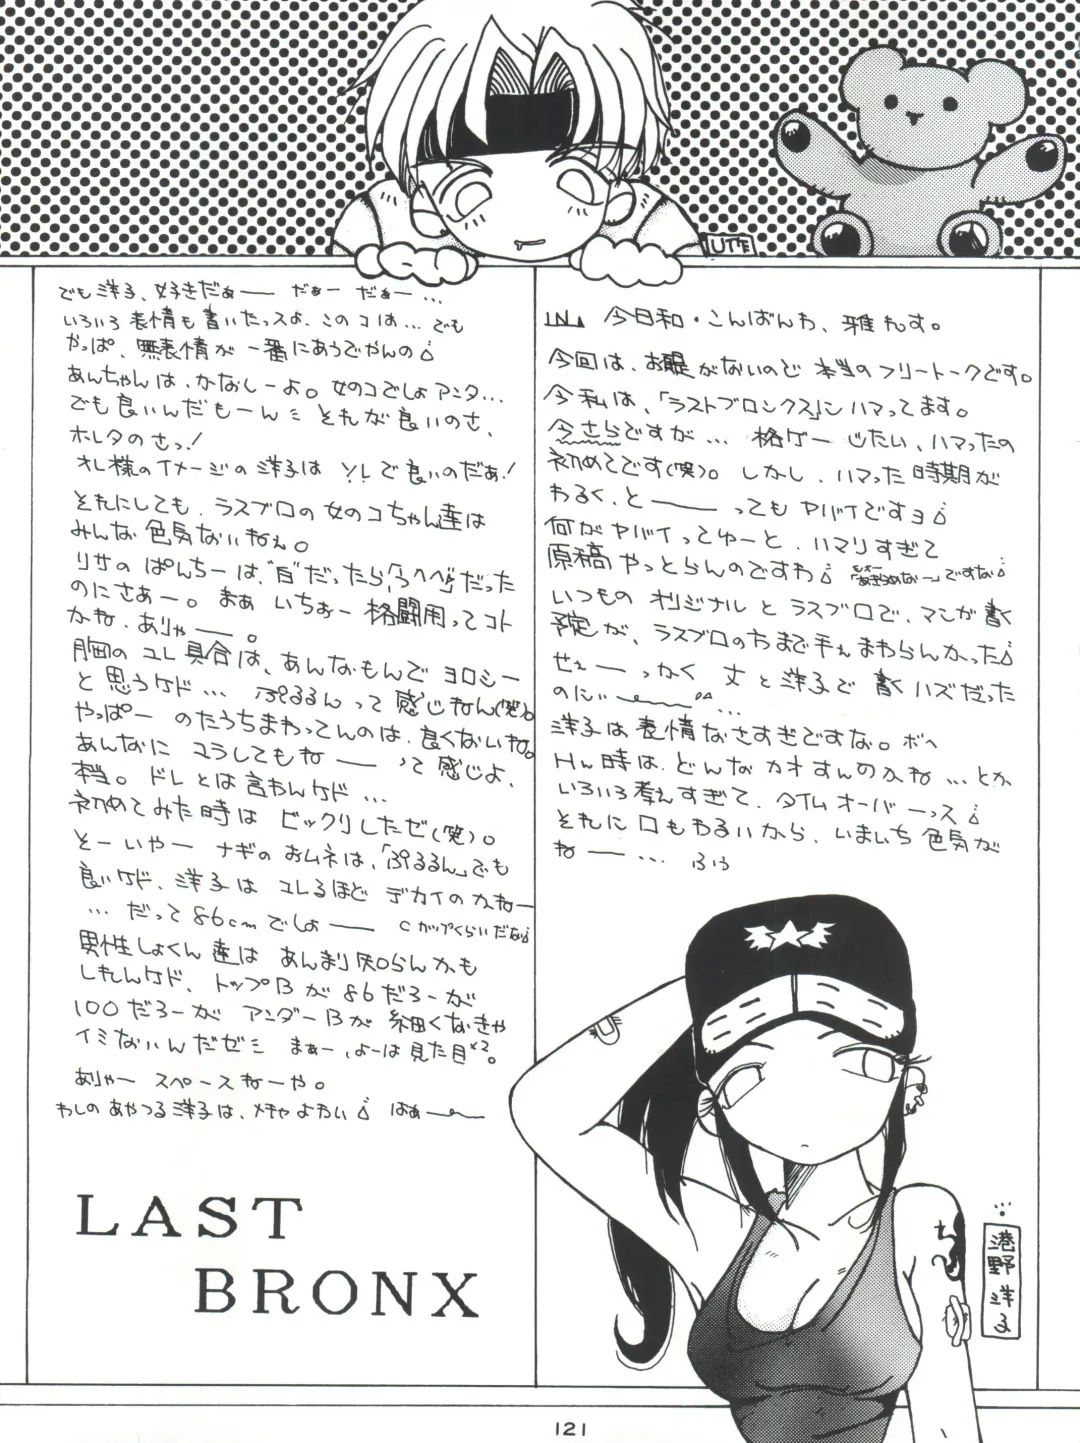 今日和・こんばんわ、雅れす。
今回は、お題がないので本当のフリートークです。
今私は、「ラストブロンクス」にハマってます。
今さらですが… 格ゲーじたい、ハマったの
初めてです(笑)。しかし、ハマった時期が
わるく、と―――ってもヤバイですヨ
何がヤバイってゆーと、ハマりすぎて
原稿やっとらんのですわ 「あきらめな〜」ですな
いつものオリジナルとラスブロで、マンガ書く
予定が、ラスブロのちまで手ぇまわらんかった
せぇ――っかく 丈と洋子で書くハズだった
のにぃ〜…
洋子は表情なさすぎですな。ボヘ
Hん時は、どんなカオすんのかね…とか
いろいろ考えすぎて、タイムオーバーっス
それに口もわるいから、いまいち色気が
ね――… ふぅ
でも洋子、好きだぁ―― だぁー だぁー…
いろいろ表情も書いたっスよ、このコは…でも
やっぱ、無表情が一番にあうでやんの
あんちゃんは、かなしーよ。女のコでしょアンタ…
でも良いんだもーん それが良いのさ、
ホレタのさっ!
オレ様のイメージの洋子はソレで良いのだぁ!
それにしても、ラスブロの女のコちゃん達は
みんな色気ないねぇ。
リサのぱんちーは、“白”だったら「うへへ」だった
のにさぁー。まぁいちぉー格闘用ってコト
かね、ありゃ――。
胸のユレ具合は、あんなもんでヨロシー
と思うケド… ぷるるんって感じねん(笑)
やっぱー のたうちまわってんのは、良くないね。
あんなにユラしてもね――って感じよ、
本当。ドレとは言わんケド…
初めてみた時はビックリしたゼ(笑)。
そーいやー ナギのおムネは、「ぷるるん」でも
良いケド、洋子はユレるほどデカイのかねー
…だって86cmでしょ―― Cカップくらいだな
男性しょくん達はあんまり知らんかも
しれんケド、トップBが86だろーが
100だろーがアンダーBが細くなきゃ
イミないんだゼ まぁー、よーは見た目×2。
ありゃー スペースねーや。
わしのあやつる洋子は、メチャよわい はぁ――
LAST
BRONX
港野洋子
121